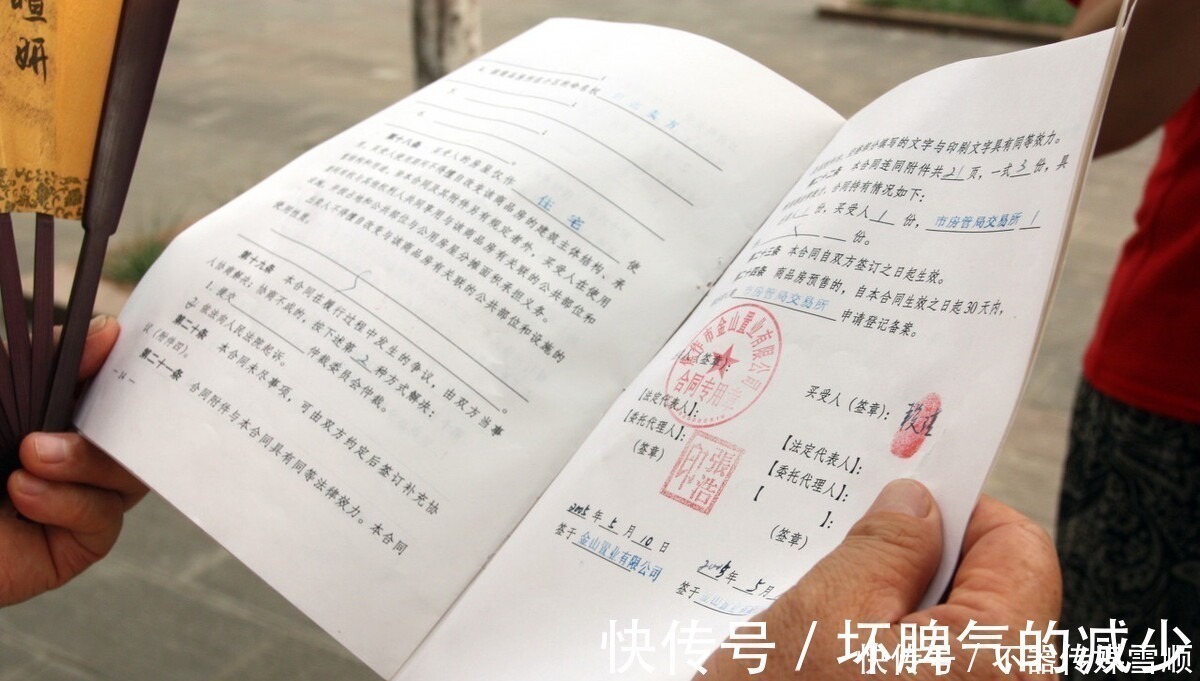 妍
第十八条 买受人的房屋仅作 住宅 使
用，买受人使用期间不得擅自改变该商品房的建筑主体结构、承
重结构和用途。除本合同及其附件另有规定者外，买受人在使用
期间有权与其他权利人共同享用与该商品房有关联的公共部位和
设施，并按占地和公共部位与公用房屋分摊面积承担义务。
出卖人不得擅自改变与该商品房有关联的公共部位和设施的
使用性质。
第十九条 本合同在履行过程中发生的争议，由双方当事
人协商解决；协商不成的，按下述第 2 种方式解决：
1. 提交 仲裁委员会仲裁。
2. 依法向人民法院起诉。
第二十条 本合同未尽事项，可由双方约定后签订补充协
议（附件四）。
第二十一条 合同附件与本合同具有同等法律效力。本合同
- 14 -
填写的文字与印刷文字具有同等效力。
第二十二条 本合同连同附件共 21 页，一式 3 份，具
有同等法律效力，合同持有情况如下：
份，买受人 1 份，市房管局交易所 1
份。
第二十三条 本合同自双方签订之日起生效。
第二十四条 商品房预售的，自本合同生效之日起30天内，
市房管局交易所 申请登记备案。
（签章）：
买受人（签章）：
市金山置业有限公司
合同专用章
【法定代表人】：
【委托代理人】：
（签章）
張浩印
【法定代表人】：
【委托代理人】：
【 】：
（签章）
2005年5月10日
签于 金山置业有限公司
2005年5月
签于
快传号 / 坏脾气的减少
快传号